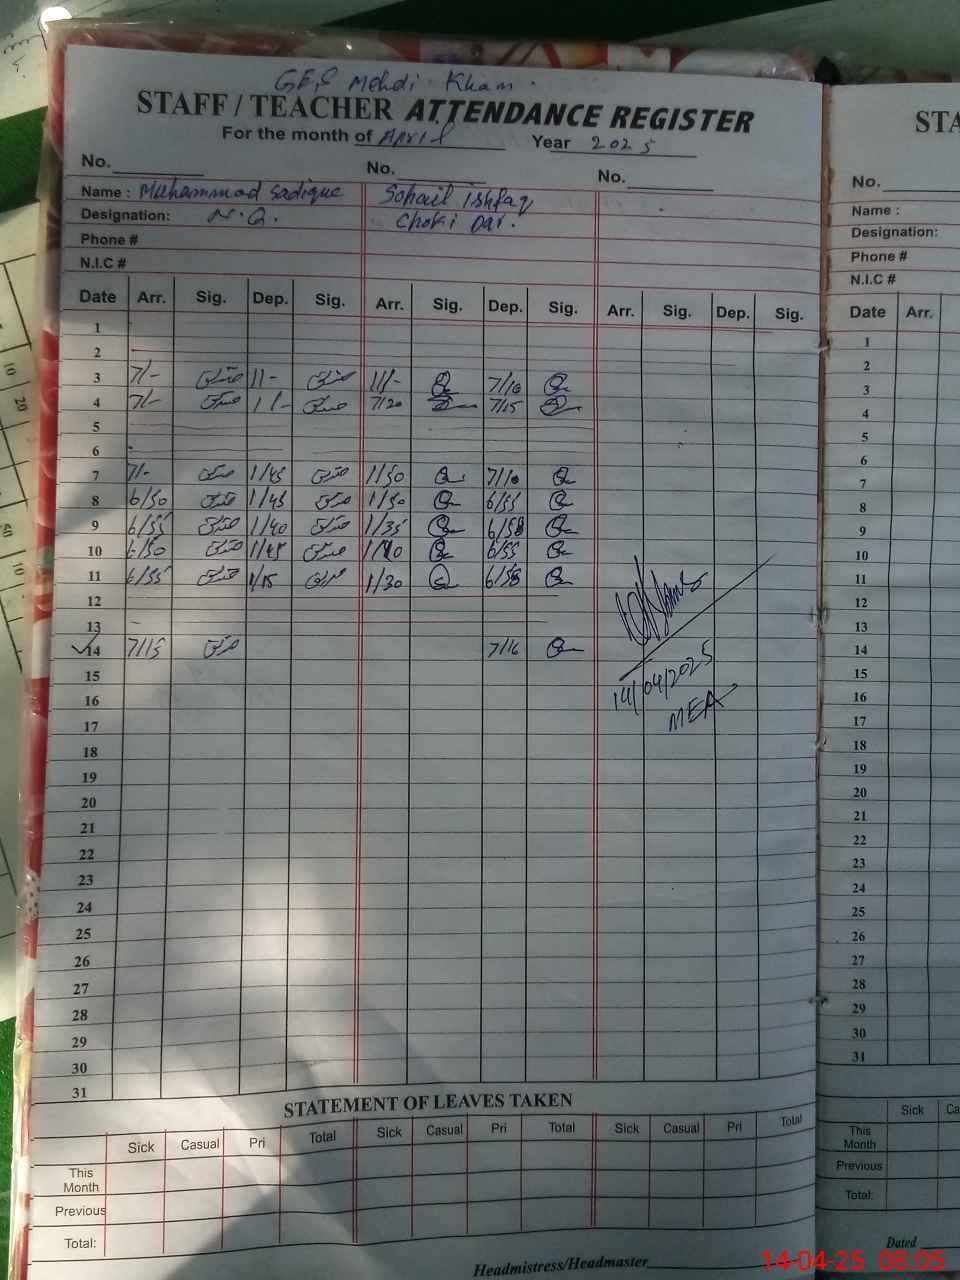 GES Mehdi Kham.
STAFF / TEACHER ATTENDANCE REGISTER
For the month of April Year 2025
No. No. No.
Name : Muhammad Sadique Sohail Ishfaq
Designation: N.Q. Choki Dar.
Phone #
N.I.C #
Date Arr. Sig. Dep. Sig. Arr. Sig. Dep. Sig. Arr. Sig. Dep. Sig.
1
2
3 7/- صدیق 11- صدیق 11/- 7/10
4 7/- صدیق 11- صدیق 7/20 7/15
5
6
7 7/- صدیق 1/45 صدیق 1/50 7/10
8 6/50 صدیق 1/45 صدیق 1/50 6/55
9 6/55 صدیق 1/40 صدیق 1/35 6/58
10 6/50 صدیق 1/45 صدیق 6/55
11 6/55 صدیق 1/15 صدیق 1/30 6/58
12
13
14 7/15 صدیق 7/16
14/04/2025
MEA
15
16
17
18
19
20
21
22
23
24
25
26
27
28
29
30
31
STATEMENT OF LEAVES TAKEN
Sick Casual Pri Total Sick Casual Pri Total Sick Casual Pri Total
This Month
Previous
Total:
Headmistress/Headmaster
STA
No.
Name :
Designation:
Phone #
N.I.C #
Date Arr.
1
2
3
4
5
6
7
8
9
10
11
12
13
14
15
16
17
18
19
20
21
22
23
24
25
26
27
28
29
30
31
Sick Ca
This Month
Previous
Total:
Dated
14-04-25 08:05